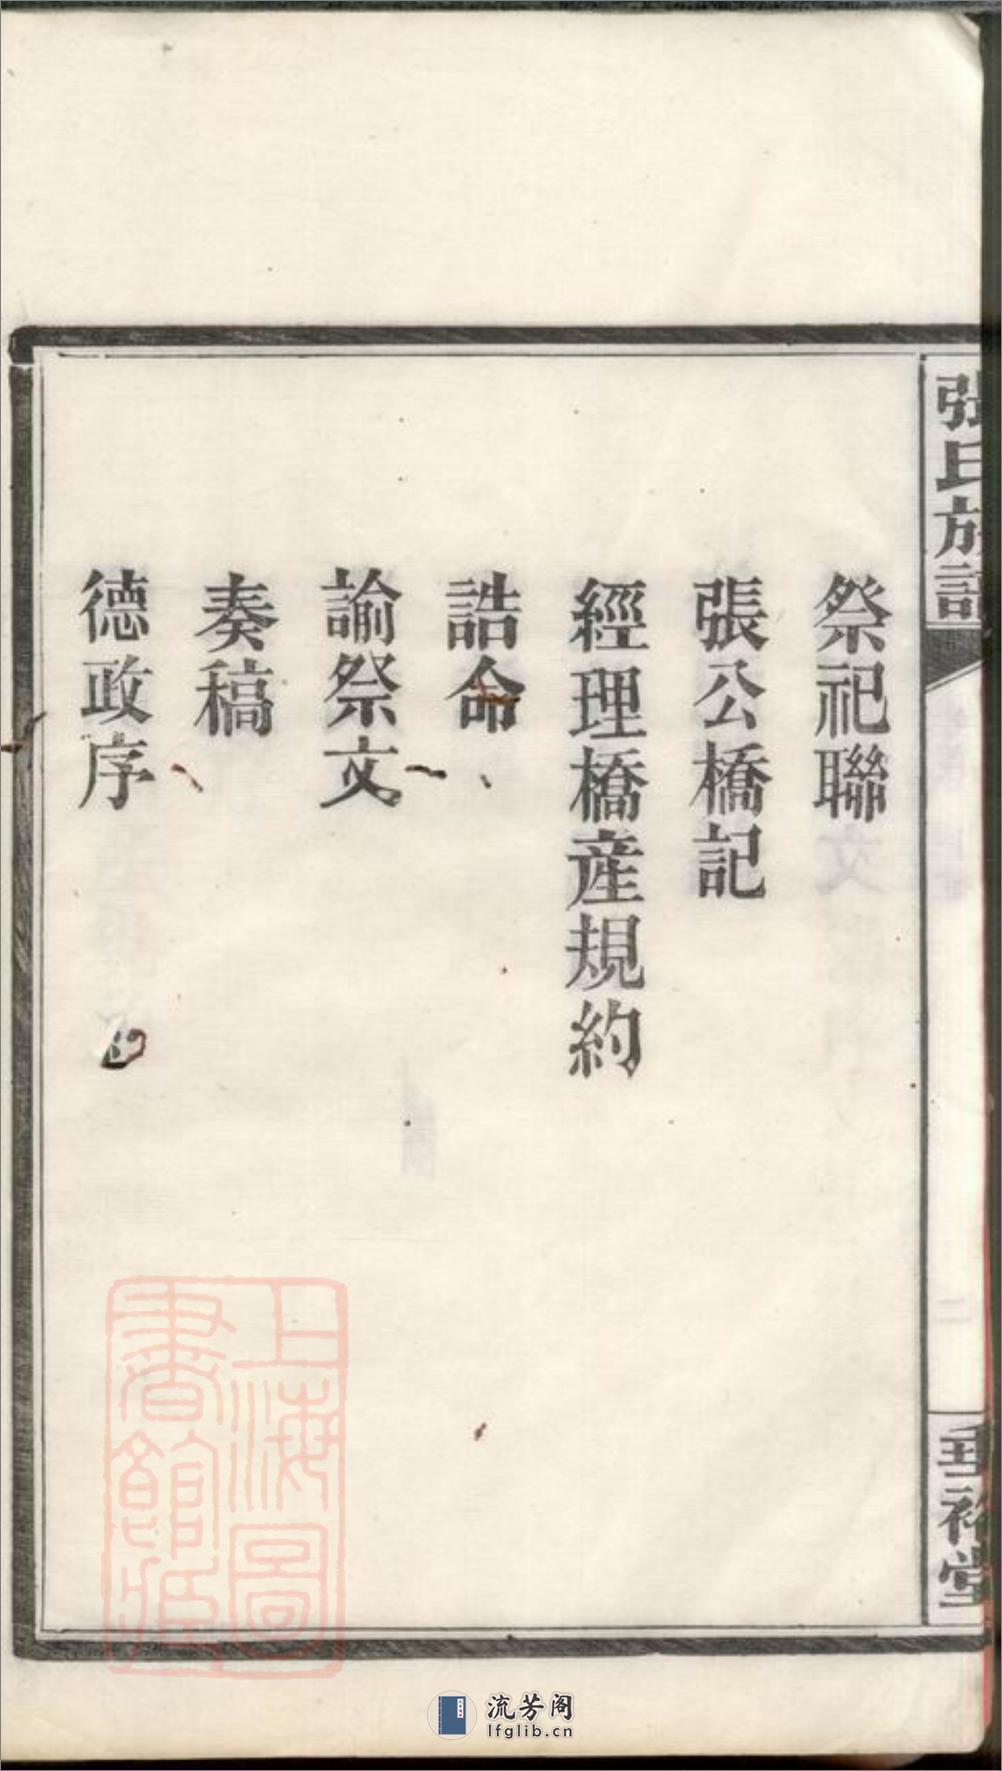 張氏族譜
垂裕堂
祭祀聯
張公橋記
經理橋產規約
誥命
諭祭文
奏稿
德政序
上海圖書館藏
流芳阁
lfglib.cn